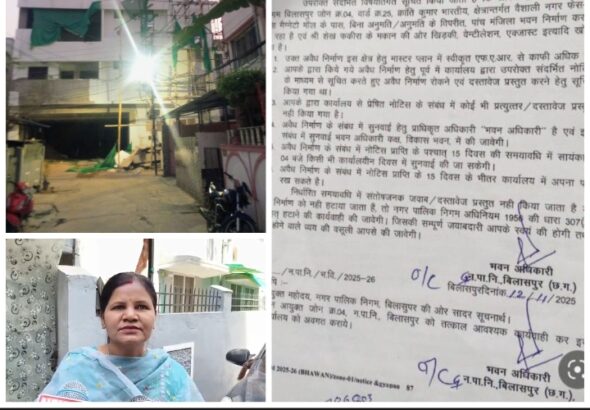 उपरोक्त संदर्भित विषयांतर्गत सूचित किया जाता है
गम बिलासपुर जोन क्र.04, वार्ड क्र.25, क्रांति कुमार भारतीय, क्षेत्रान्तर्गत वैशाली नगर फेस-
मैग्नेटो मॉल के पास, बिना अनुमति/अनुमति के विपरीत, पांच मंजिला भवन निर्माण कर
रहा है एवं श्री शेख फकीरा के मकान की ओर खिड़की, वेन्टीलेशन, एक्जास्ट इत्यादि खो
है।
उक्त अवैध निर्माण इस क्षेत्र हेतु मास्टर प्लान में स्वीकृत एफ.ए.आर. से काफी अधिक
आपके द्वारा किये गये अवैध निर्माण हेतु पूर्व में कार्यालय द्वारा उपरोक्त संदर्भित नोटि
के माध्यम से सूचित करते हुए अवैध निर्माण रोकने एवं दस्तावेज प्रस्तुत करने हेतु सूचि
किया गया था।
3. आपके द्वारा कार्यालय से प्रेषित नोटिस के संबंध में कोई भी प्रत्युत्तर/दस्तावेज प्रस्
नही किया गया है।
अवैध निर्माण के संबंध में सुनवाई हेतु प्राधिकृत अधिकारी "भवन अधिकारी" है एवं इ
संबंध में सुनवाई भवन अधिकारी कक्ष, विकास भवन, में की जावेगी।
अवैध निर्माण के संबंध में नोटिस प्राप्ति के पश्चात् 15 दिवस की समयावधि में सायंका
04 बजे किसी भी कार्यालयीन दिवस में सुनवाई की जा सकेगी।
अवैध निर्माण के संबंध में नोटिस प्राप्ति के 15 दिवस के भीतर कार्यालय में अपना प
रख सकते है।
निर्धारित समयावधि में संतोषजनक जवाब/दस्तावेज प्रस्तुत नही किया जाता है
निर्माण को नही हटाया जाता हैं, तो नगर पालिक निगम अधिनियम 1956 की धारा 307(
हटाने की कार्यवाही की जावेगी। जिसकी सम्पूर्ण जवाबदारी आपके स्वयं की होगी तथ
होने वाले व्यय की वसूली आपसे की जावेगी।
भवन अधिकारी
O/C न.पा.नि., बिलासपुर (छ.ग.)
/न.पा.नि./भ.वि./2025-26 बिलासपुर दिनांक 12/11/2025
महोदय, नगर पालिक निगम, बिलासपुर की ओर सादर सूचनार्थ।
आयुक्त जोन क्र.04, न.पा.नि., बिलासपुर को तत्काल आवश्यक कार्यवाही कर इस
कार्यालय को अवगत कराये।
भवन अधिकारी
O/C न.पा.नि., बिलासपुर (छ.ग.)
2025-26 (BHAWAN)/zone-01/notice 87